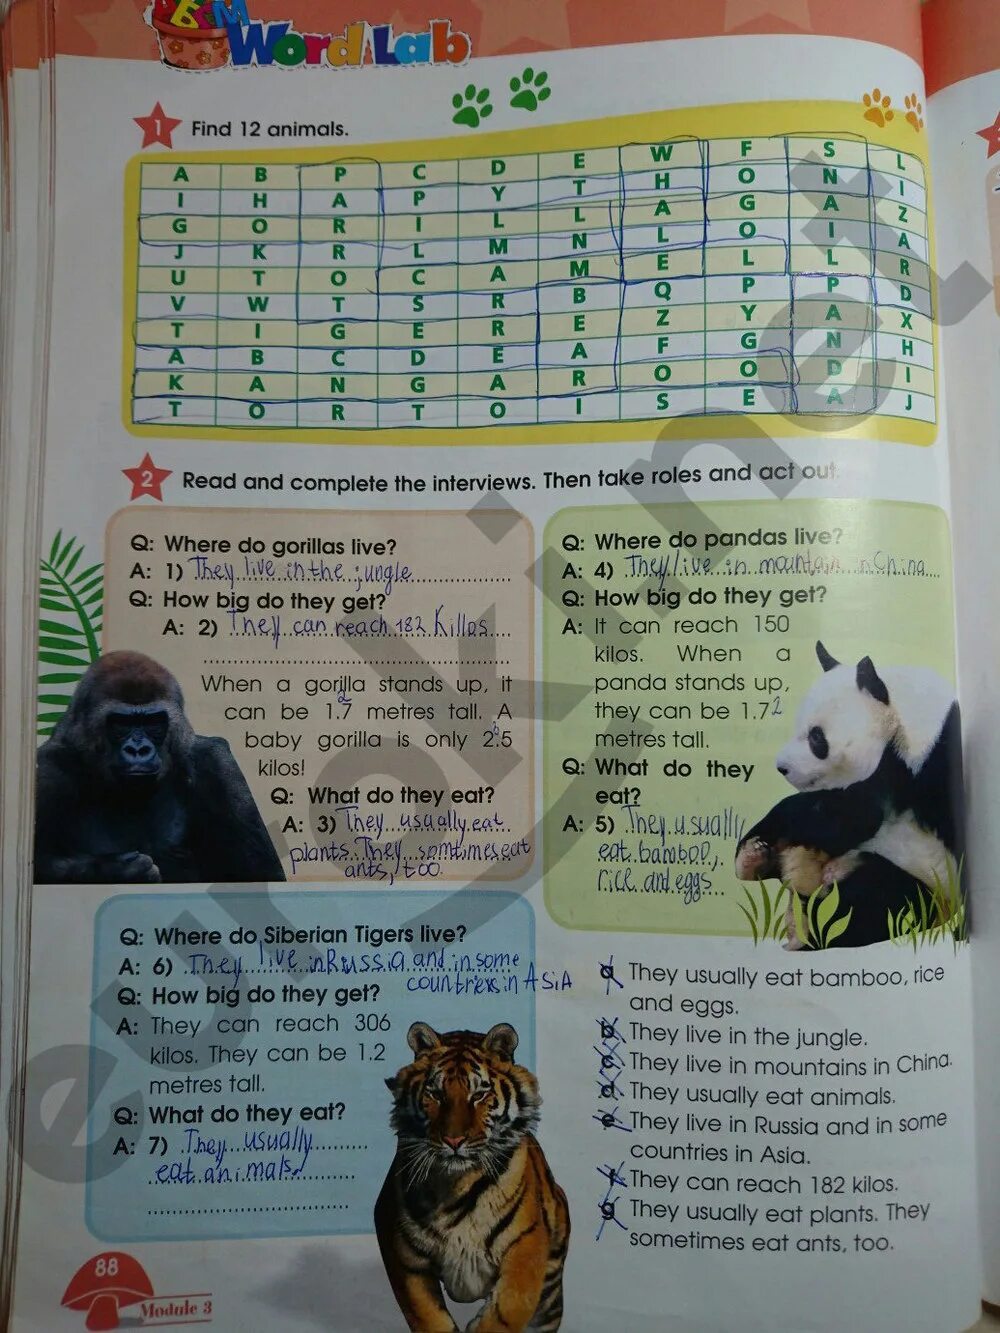 Word Lab
1 Find 12 animals.
A B P C D E W F S L
I H A P Y T H O N I
G O R I L L A G A Z
J K R L M N L O I A
U T O C A M E L L R
V W T S R B Q P P D
T I G E R E Z Y A X
A B C D E A F G N H
K A N G A R O O D I
T O R T O I S E A J
2 Read and complete the interviews. Then take roles and act out.
Q: Where do gorillas live?
A: 1) They live in the jungle
Q: How big do they get?
A: 2) They can reach 182 Killos
When a gorilla stands up, it
can be 1.7 metres tall. A
baby gorilla is only 2.5
kilos!
Q: What do they eat?
A: 3) They usually eat
plants. They somtimes eat
ants, too.
Q: Where do pandas live?
A: 4) They live in mountain in China
Q: How big do they get?
A: It can reach 150
kilos. When a
panda stands up,
they can be 1.72
metres tall.
Q: What do they
eat?
A: 5) They usually
eat bamboo,
rice and eggs
Q: Where do Siberian Tigers live?
A: 6) They live in Russia and in some
countries in ASiA
Q: How big do they get?
A: They can reach 306
kilos. They can be 1.2
metres tall.
Q: What do they eat?
A: 7) They usually
eat animals.
a They usually eat bamboo, rice
and eggs.
b They live in the jungle.
c They live in mountains in China.
d They usually eat animals.
e They live in Russia and in some
countries in Asia.
f They can reach 182 kilos.
g They usually eat plants. They
sometimes eat ants, too.
88
Module 3
euroki.net